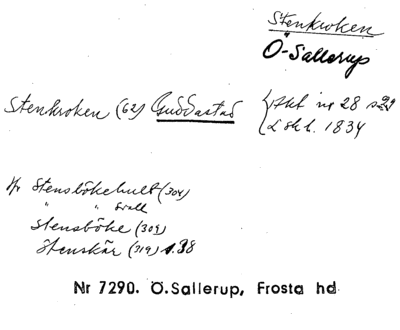 Stenkroken
Ö-Sallerup
Stenkroken (62) Guddastad { Akt nr 28 s 29
L sk t. 1834
Jfr Stensbökehult (304)
" " Svall
Stensböke (309)
Stenskär (719) s. 38
Nr 7290. Ö. Sallerup, Frosta hd